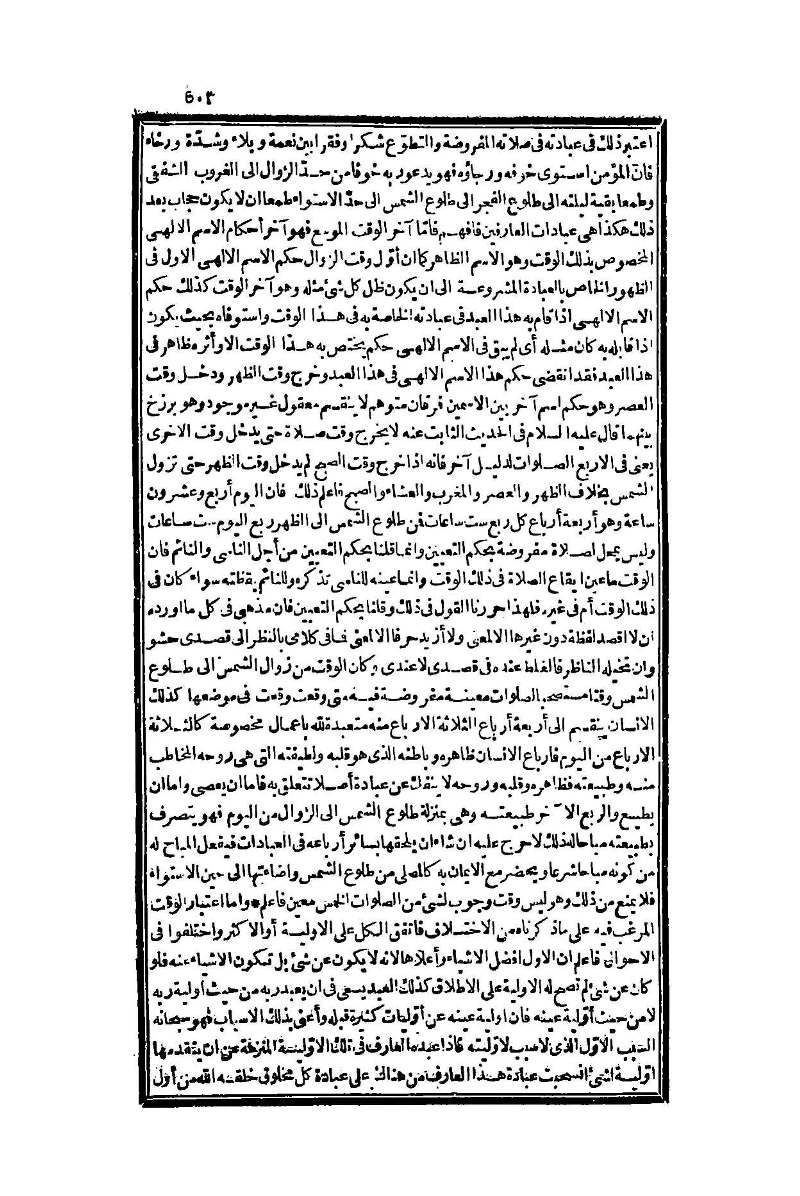 ٥٠٣
اعتبر ذلك فى عبادته فى صلاته المفروضة والتطوّع شكرا وفقرا بين نعمة وبلاء وشدّة ورخاء
فان المؤمن استوى خوفه ورجاؤه فهو يدعو ربه خوفا من حدّ الزوال الى الغروب الشفقى
وطمعا بقية ليلته الى طلوع الفجر الى طلوع الشمس الى حدّ الاستواء طمعا ان لا يكون حجاب بعد
ذلك هكذا هى عبادات العارفين فافهم فأمّا آخر الوقت الموسع فهو آخر أحكام الاسم الالهى
المخصوص بذلك الوقت وهو الاسم الظاهر كما ان أوّل وقت الزوال حكم الاسم الالهى الاول فى
الظهور الخاص بالعبادة المشروعة الى ان يكون ظل كل شئ مثله وهو آخر الوقت كذلك حكم
الاسم الالهى اذا قام به هذا العبد فى عبادته الخاصة به فى هذا الوقت واستوفاه بحيث يكون
اذا قابله به كان مثله أى لم يبق فى الاسم الالهى حكم يختص به هذا الوقت الا وأثره ظاهر فى
هذا العبد فقد انقضى حكم هذا الاسم الالهى فى هذا العبد وخرج وقت الظهر ودخل وقت
العصر وهو حكم اسم آخر بين الاسمين فرقان متوهم لا ينقسم معقول غير موجود وهو برزخ
بينهما قال عليه السلام فى الحديث الثابت عنه لا يخرج وقت صلاة حتى يدخل وقت الاخرى
يعنى فى الاربع الصلوات لدليل آخر فانه اذا خرج وقت الصبح لم يدخل وقت الظهر حتى تزول
الشمس بخلاف الظهر والعصر والمغرب والعشاء والصبح فاعلم ذلك فان اليوم أربع وعشرون
ساعة وهو أربعة أرباع كل ربع ست ساعات فن طلوع الشمس الى الظهر ربع اليوم ست ساعات
وليس بمحل لصلاة مفروضة بحكم التعيين وانما قلنا بحكم التعيين من أجل الناسى والنائم فان
الوقت ما عين ايقاع الصلاة فى ذلك الوقت وانما عينه للناسى تذكره وللنائم يقظته سواء كان فى
ذلك الوقت أم فى غيره فلهذا حررنا القول فى ذلك وقلنا بحكم التعيين فان مذهبى فى كل ما اورده
ان لا اقصد لفظة دون غيرها الا لمعنى ولا أزيد حرفا الا لمعنى فما فى كلامى بالنظر الى قصدى حشو
وان تخيله الناظر فالغلط عنده فى قصدى لا عندى وكان الوقت من زوال الشمس الى طلوع
الشمس وقتا مستصحبا لصلوات معينة مفروضة فيه متى وقعت وقعت فى موضعها كذلك
الانسان ينقسم الى أربعة أرباع الثلاثة الارباع منه متعبدة لله باعمال مخصوصة كالثلاثة
الارباع من اليوم فارباع الانسان ظاهره وباطنه الذى هو قلبه ولطيفته التى هى روحه المخاطب
منه وطبيعته فظاهره وقلبه وروحه لا ينفك عن عبادة أصلا تتعلق به فاما ان يعصى واما ان
يطيع والربع الآخر طبيعته وهى بمنزلة طلوع الشمس الى الزوال من اليوم فهو يتصرف
بطبيعته مباحا له ذلك لا حرج عليه ان شاء ان يلحقها بسائر أرباعه فى العبادات فيفعل المباح له
من كونه مباحا شرعا ويحضر مع الايمان به كالمصلى من طلوع الشمس واضاءتها الى حين الاستواء
فلا يمنع من ذلك وهو ليس وقت وجوب لشئ من الصلوات الخمس معين فاعلم * واما اعتبار الوقت
المرغب فيه على ما ذكرناه من الاختلاف فاتفق الكل على الاولية أو الاكثر واختلفوا فى
الاحوال فاعلم ان الاول افضل الاشياء وأعلاها لانه لا يكون عن شئ بل تتكون الاشياء عنه فلو
كان عن شئ لم تصح له الاولية على الاطلاق كذلك العبد يسعى فى ان يعبد ربه من حيث أولية ربه
لا من حيث أولية عينه فان اولية عينه عن أوليات كثيرة قبله وأعنى بذلك الاسباب فهو سبحانه
السبب الاوّل الذى لا سبب لاوليته فاذا عبده العارف فى تلك الاولية المنزهة عن ان يتقدمها
اولية لشئ انسحبت عبادة هذا العارف من هناك على عبادة كل مخلوق خلقه الله من أول